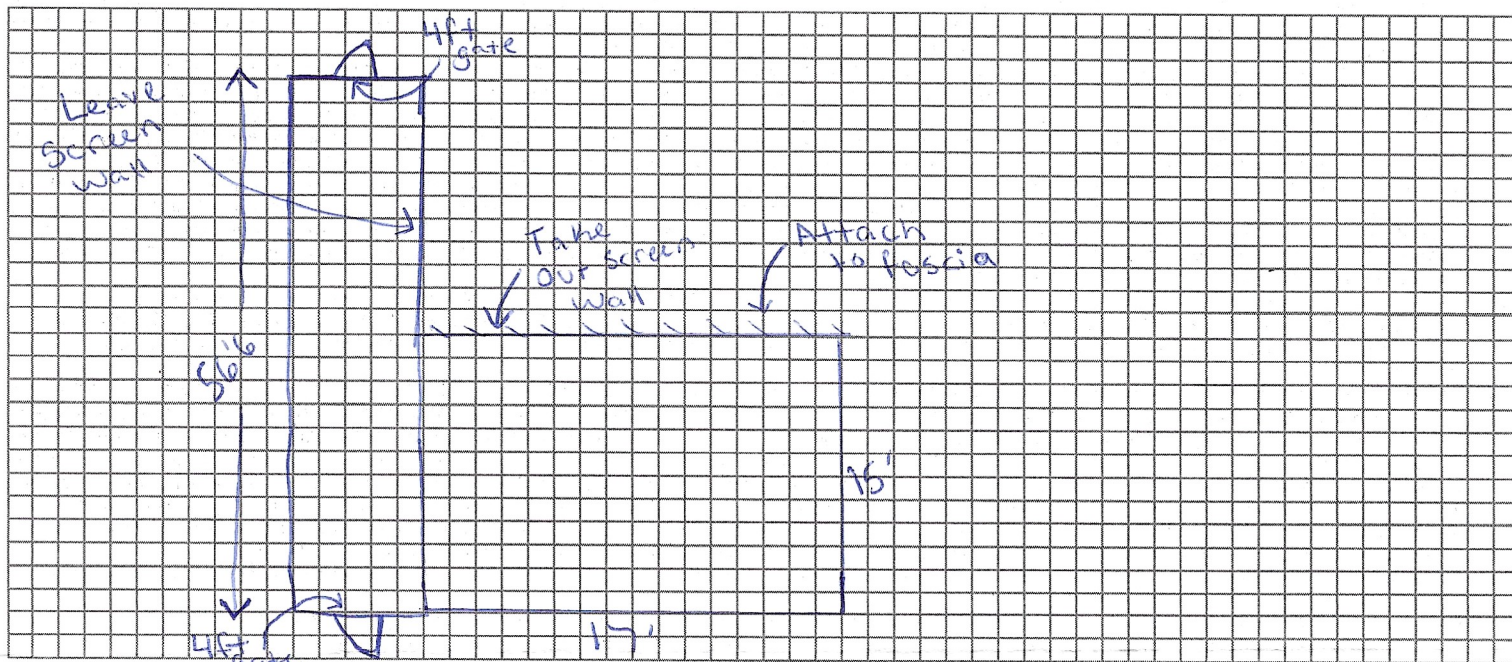 4ft
gate
Leave
Screen
Wall
Take
Out Screen
Wall
Attach
to fascia
56'6
15'
17'
4ft
gate